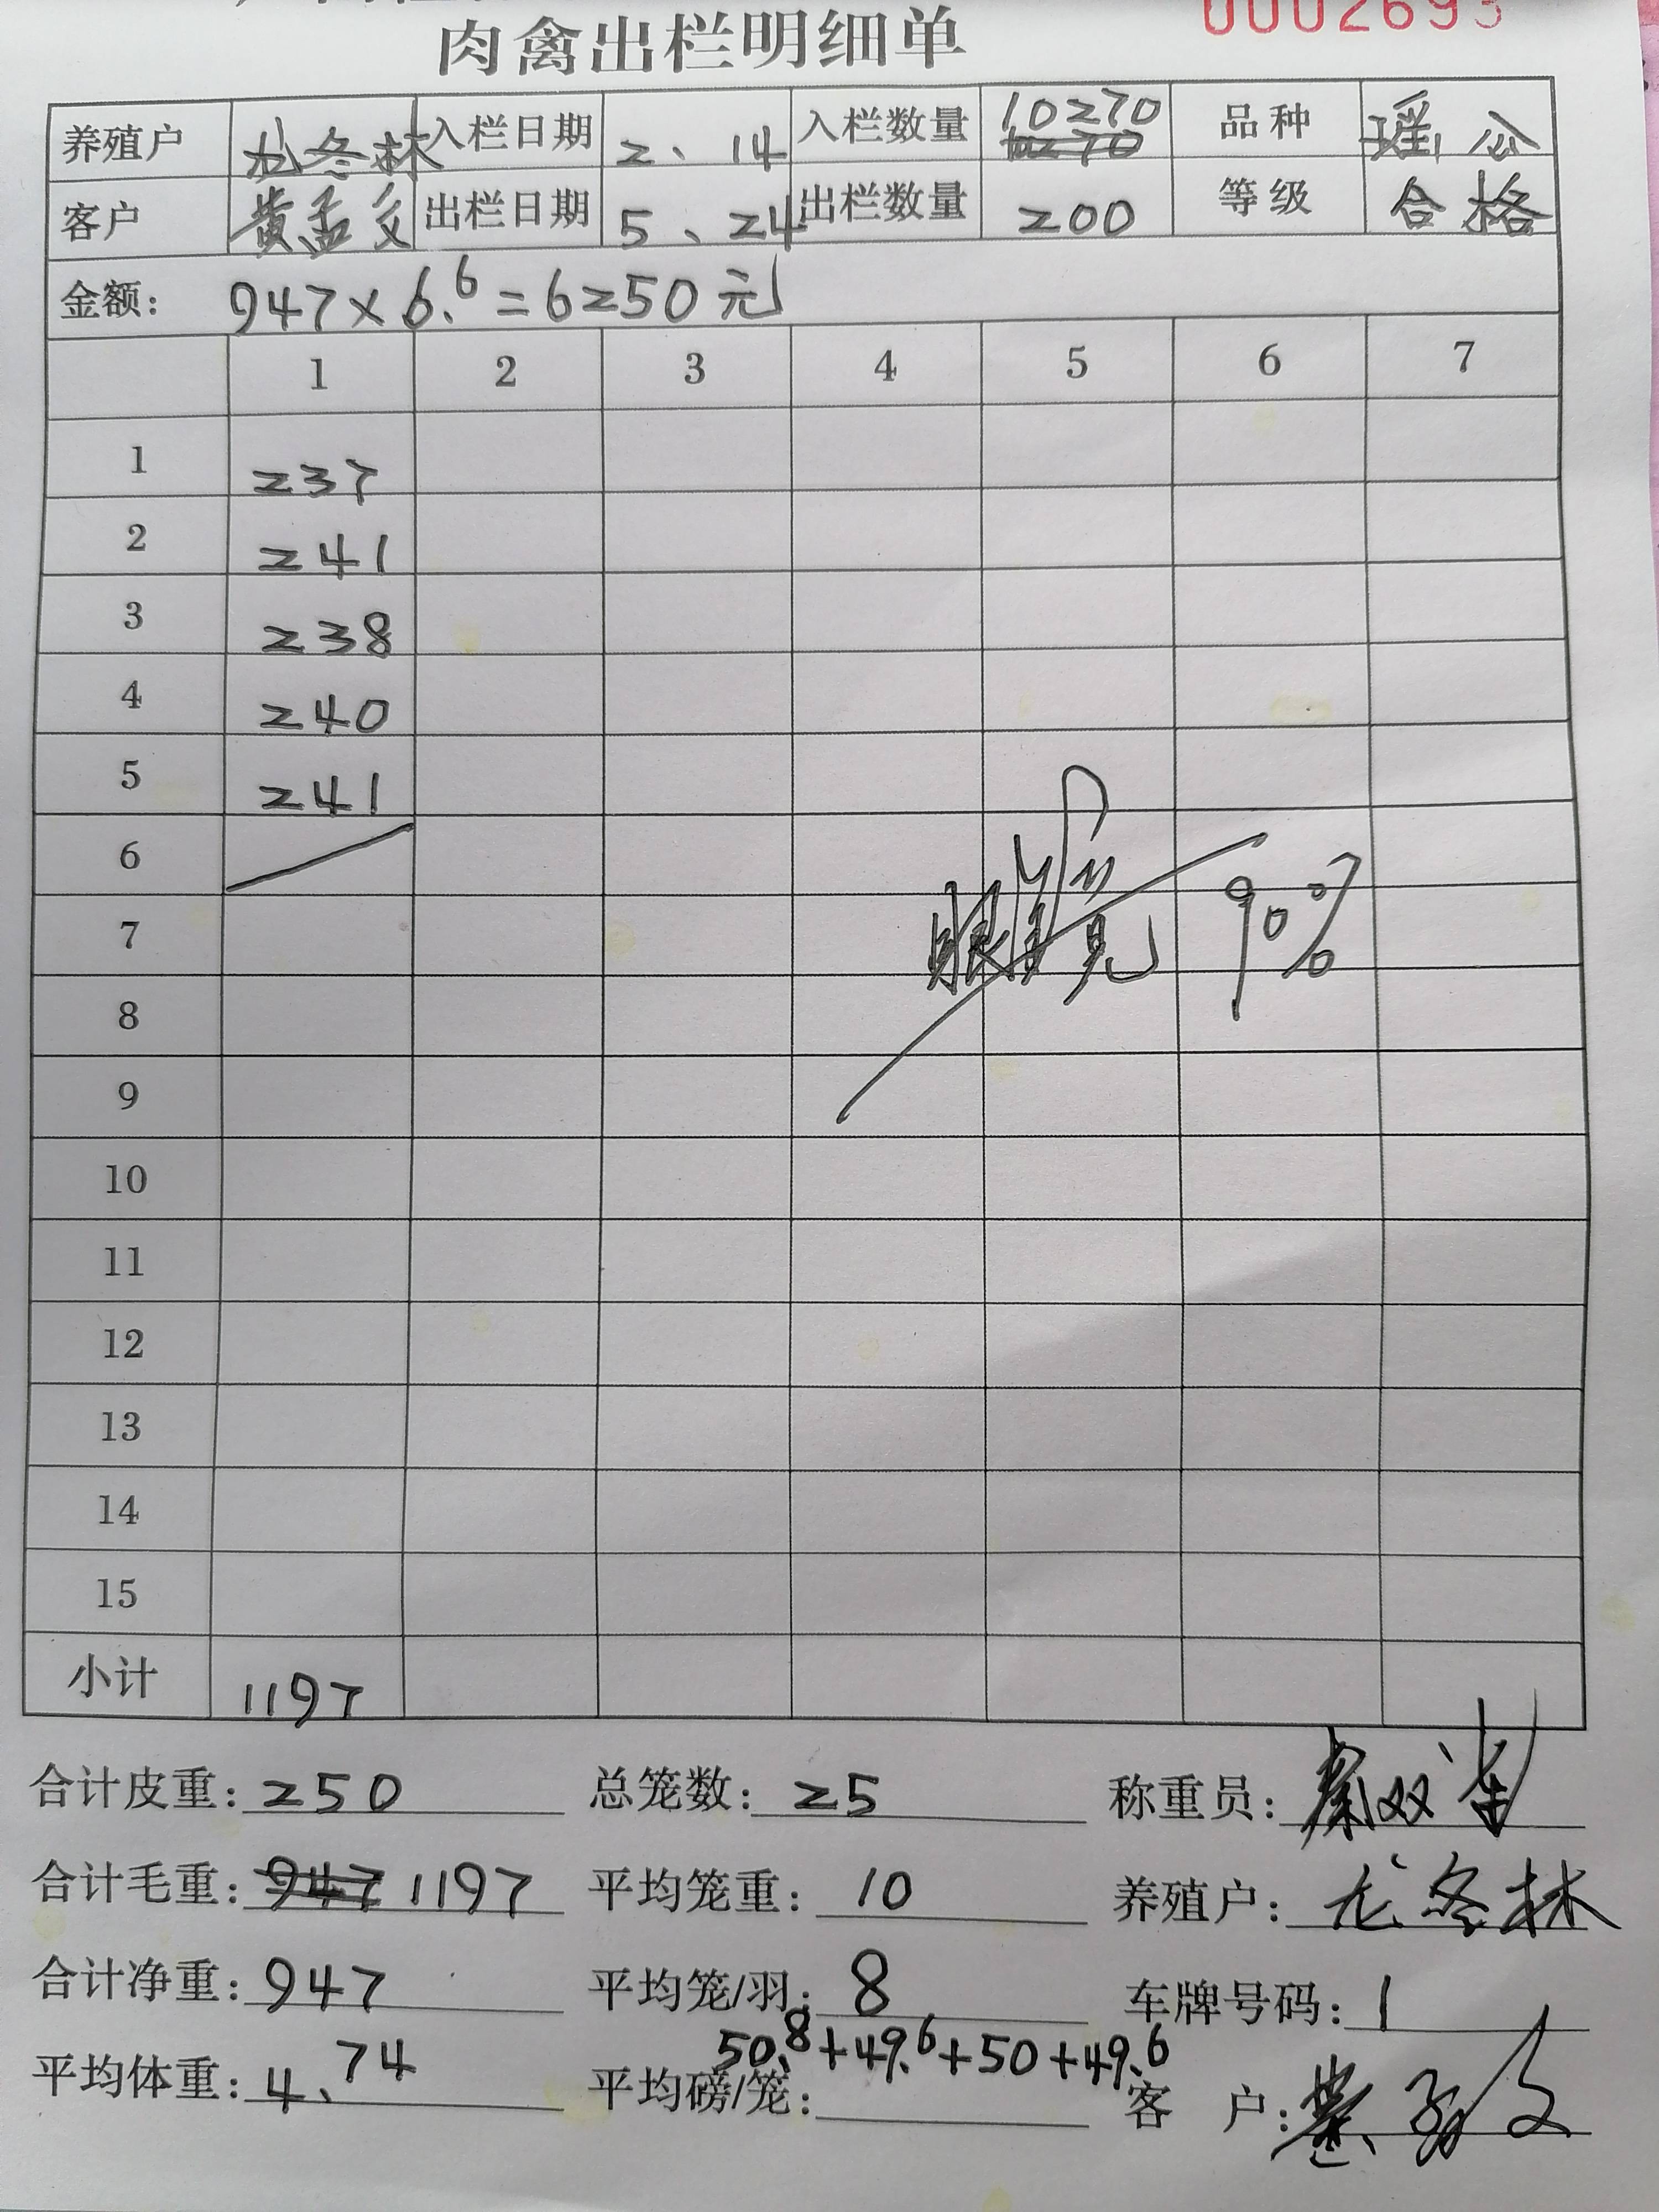 0002693
肉禽出栏明细单
养殖户 龙冬林 入栏日期 2、14 入栏数量 10270 品种 瑶公
客户 黄孟交 出栏日期 5、24 出栏数量 200 等级 合格
金额: 947×6.6=6250元
1 2 3 4 5 6 7
1 237
2 241
3 238
4 240
5 241
6
7 90%
8
9
10
11
12
13
14
15
小计 1197
合计皮重: 250 总笼数: 25 称重员: 秦双
合计毛重: 947 1197 平均笼重: 10 养殖户: 龙冬林
合计净重: 947 平均笼/羽: 8 车牌号码: 1
50.8+49.6+50+49.6
平均体重: 4.74 平均磅/笼: 客 户: